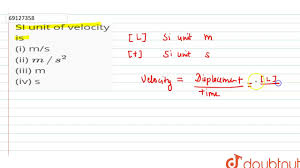 69127358
SI unit of velocity
is
(i) m/s
(ii) m / s²
(iii) m
(iv) s
[L] Si unit m
[t] Si unit s
Velocity = Displacement / Time = [L]
doubtnut